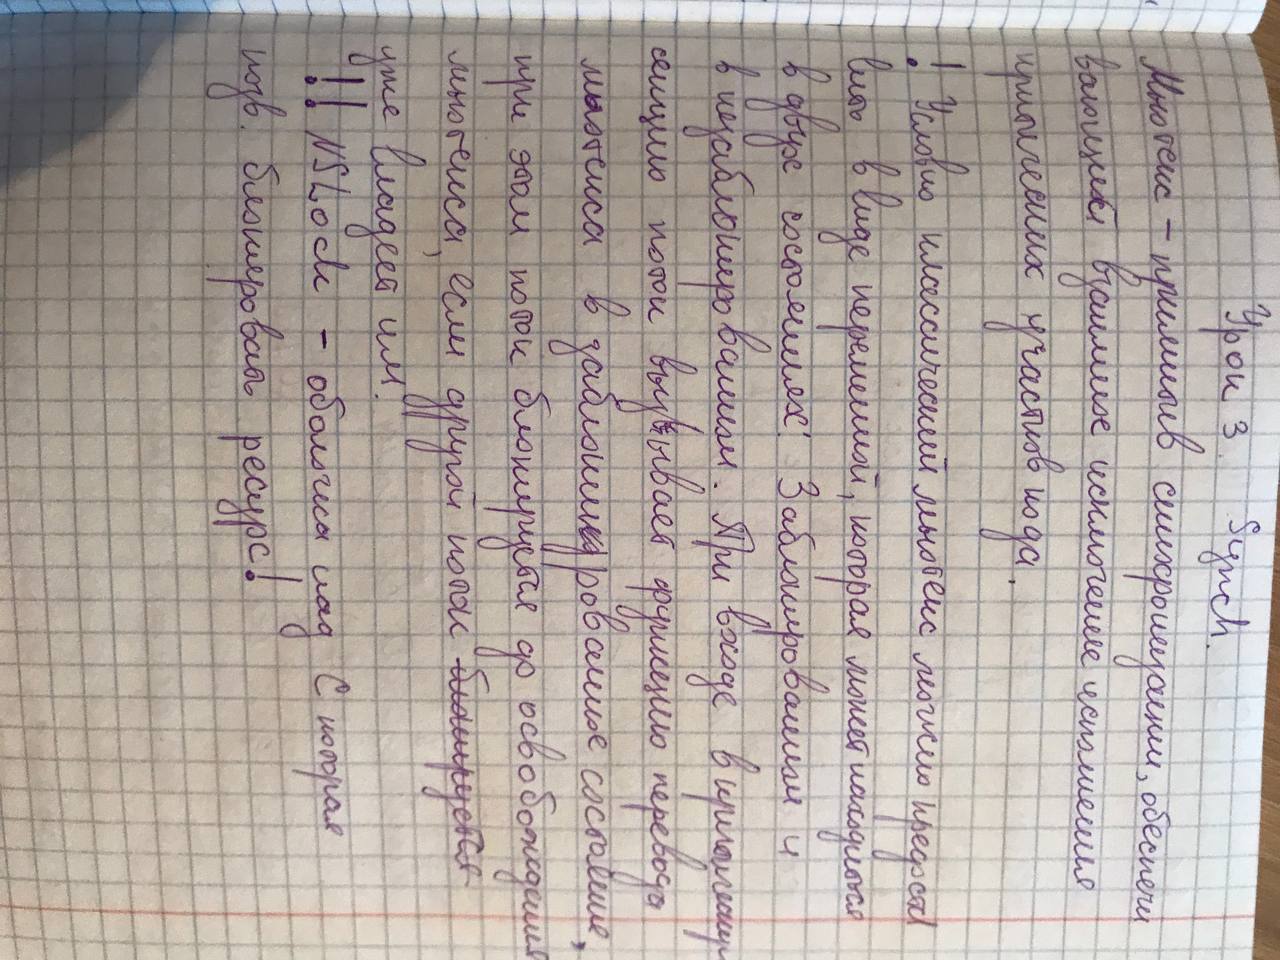 Урок 3. Synch.
Мьютекс – примитив синхронизации, обеспечи
вающий взаимное исключение исполнения
критических участков кода.
! Условно классический мьютекс можно предста
вить в виде переменной, которая может находиться
в двух состояниях: Заблокированном и
в незаблокированном. При входе в критическую
секцию поток вызывает функцию перевода
мьютекса в заблокированное состояние,
при этом поток блокируется до освобождения
мьютекса, если другой поток блокируется
уже владеет им.
!! NSLock – оболочка над С которая
позв. блокировать ресурс!